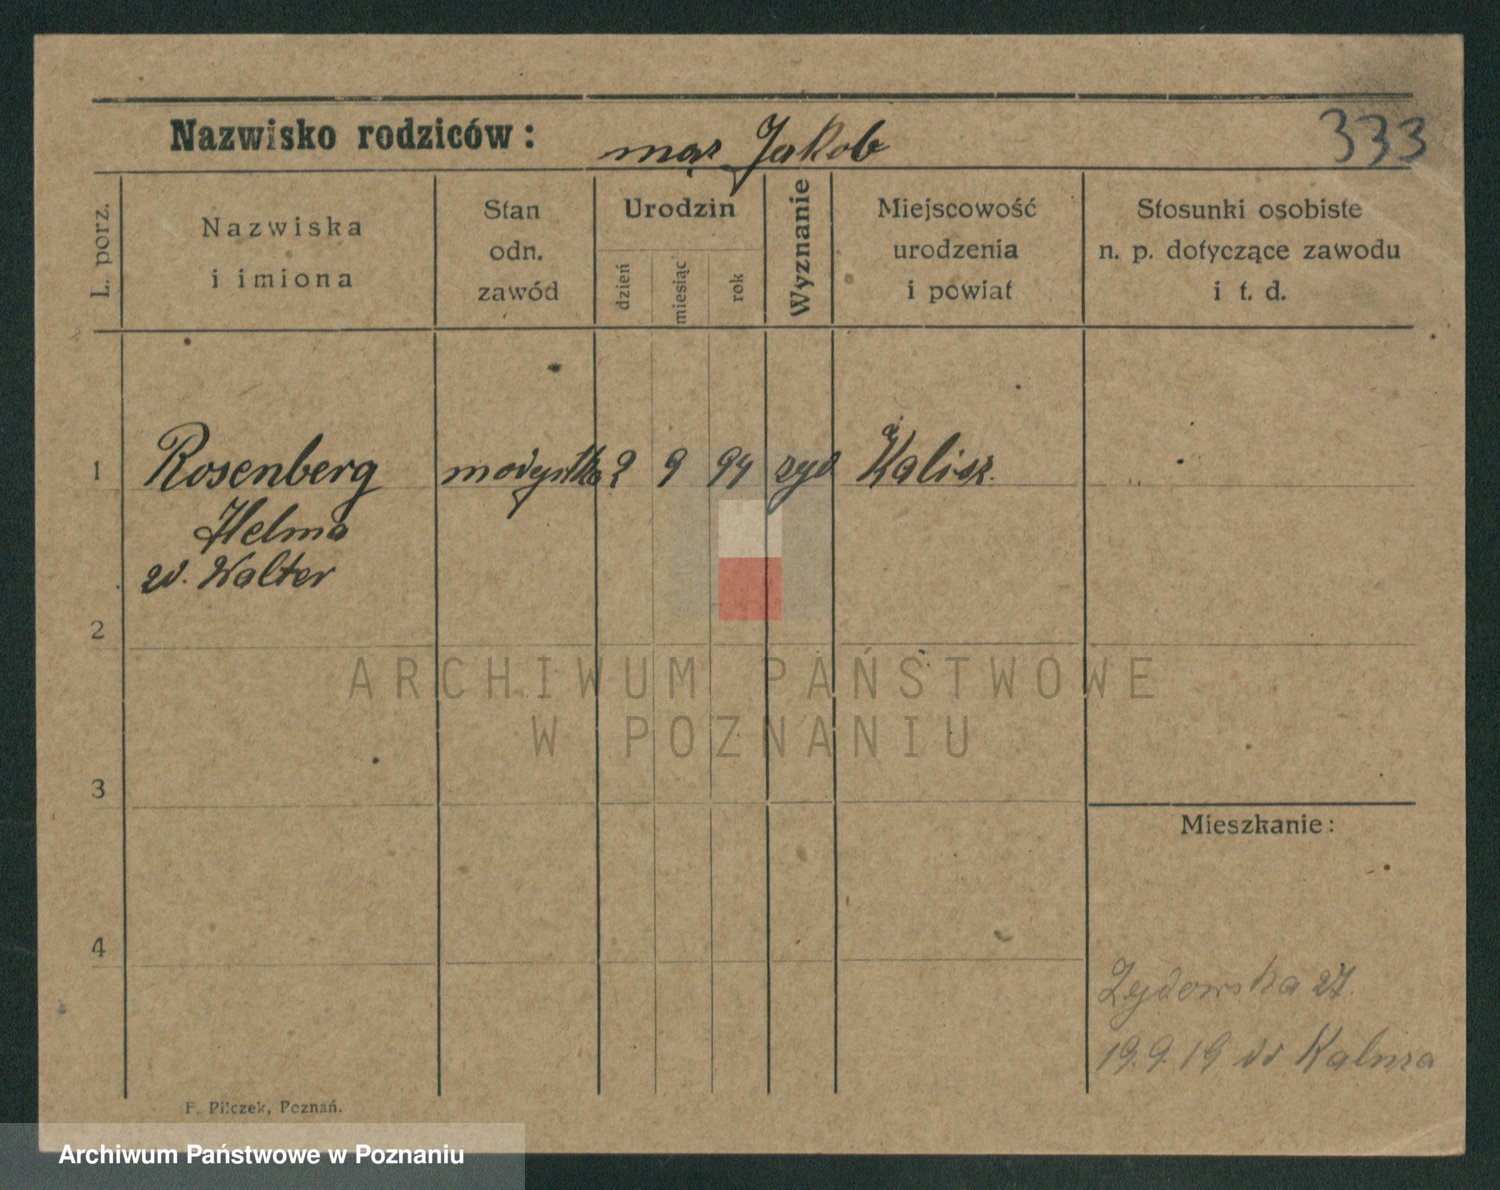 Nazwisko rodziców: mąż Jakob
333
L. porz.
Nazwiska
i imiona
Stan
odn.
zawód
Urodzin
dzień
miesiąc
rok
Wyznanie
Miejscowość
urodzenia
i powiat
Stosunki osobiste
n. p. dotyczące zawodu
i t. d.
1 Rosenberg modystka 2 9 94 żyd Kalisz.
Helma
zd. Walter
2
3
4
ARCHIWUM PAŃSTWOWE
W POZNANIU
Mieszkanie:
Żydowska 27.
19.9.19 do Kalisza
F. Pilczek, Poznań.
Archiwum Państwowe w Poznaniu